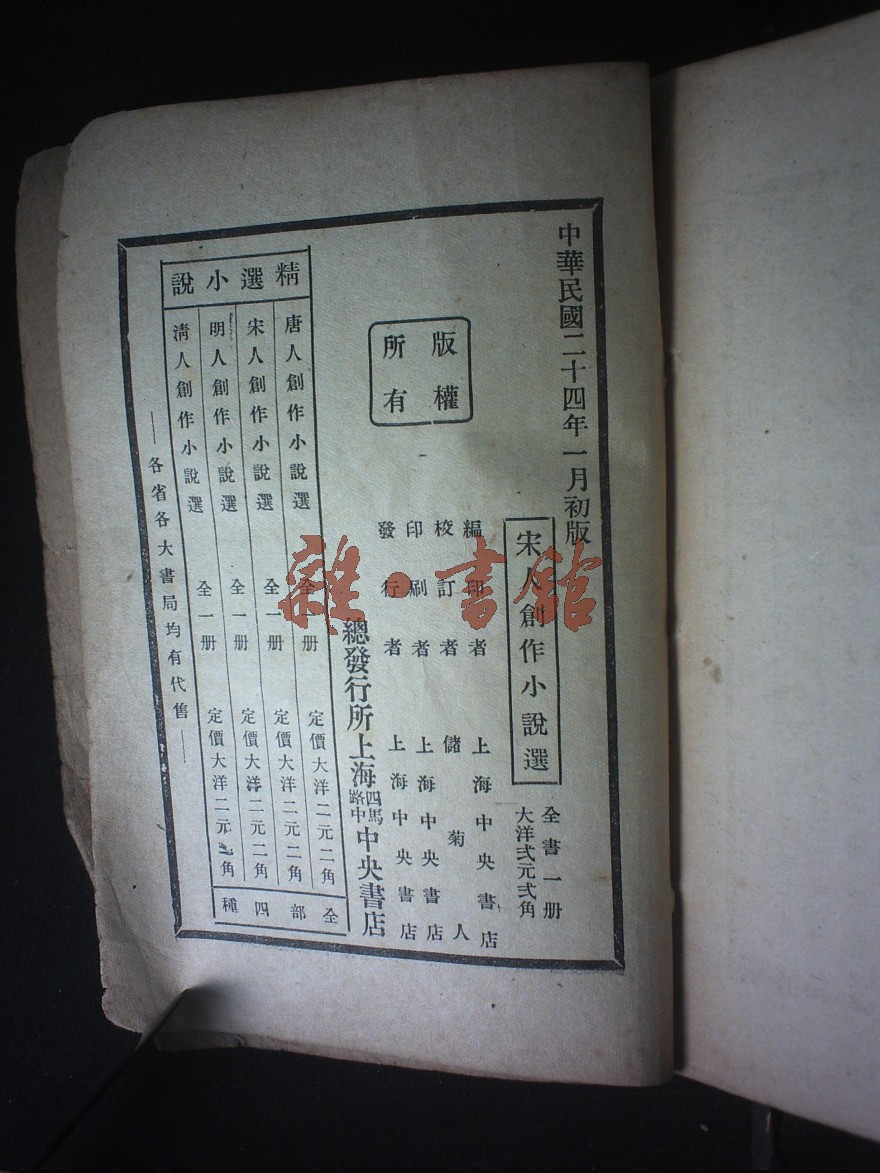 中華民國二十四年一月初版
宋人創作小說選
全書一册
大洋弍元弍角
版權
所有
編印者 上海中央書店
校訂者 儲菊人
印刷者 上海中央書店
發行者 上海中央書店
總發行所上海四馬路中中央書店
精選小說
唐人創作小說選 全一册 定價大洋二元二角
宋人創作小說選 全一册 定價大洋二元二角
明人創作小說選 全一册 定價大洋二元二角
清人創作小說選 全一册 定價大洋二元二角
全部四種
——各省各大書局均有代售——
雜·書館